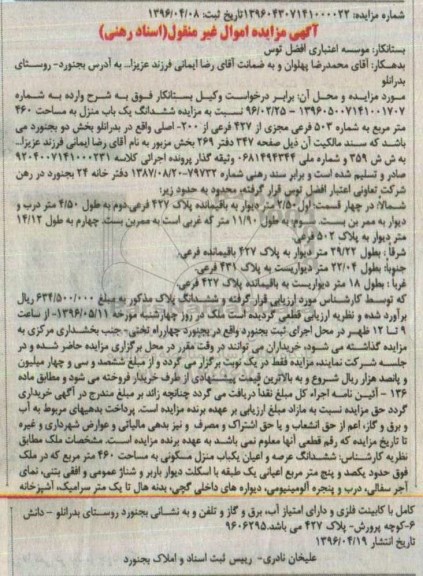 شماره مزایده: ۱۳۹۶۰۴۳۰۷۱۴۱۰۰۰۰۲۲تاریخ ثبت: ۱۳۹۶/۰۴/۰۸
آگهی مزایده اموال غیر منقول(اسناد رهنی)
بستانکار: موسسه اعتباری افضل توس
بدهکار: آقای محمدرضا پهلوان و به ضمانت آقای رضا ایمانی فرزند عزیزا... به آدرس بجنورد- روستای
بدرانلو
مورد مزایده و محل آن: برابر درخواست وکیل بستانکار فوق به شرح وارده به شماره
۱۳۹۶۰۵۰۰۷۱۴۱۰۰۱۷۰۷ - ۹۶/۰۲/۲۵ نسبت به مزایده ششدانگ یک باب منزل به مساحت ۴۶۰
متر مربع به شماره ۵۰۳ فرعی مجزی از ۴۲۷ فرعی از ۲۰۰- اصلی واقع در بدرانلو بخش دو بجنورد می
باشد که سند مالکیت آن ذیل صفحه ۳۴۷ دفتر ۲۶۹ بخش مزبور به نام آقای رضا ایمانی فرزند عزیزا...
به ش ش ۳۵۹ و شماره ملی ۰۶۸۱۴۹۴۳۴۴ وثیقه گذار پرونده اجرائی کلاسه ۹۲۰۴۰۰۷۱۴۱۰۰۰۲۳۱
صادر و تسلیم شده است و برابر سند رهنی شماره ۷۹۷۳۲-۱۳۸۷/۰۸/۲۰ دفتر خانه ۲۴ بجنورد در رهن
شرکت تعاونی اعتبار افضل توس قرار گرفته، محدود به حدود زیر:
شمالا: در چهار قسمت: اول ۲/۵۰ متر دیوار به باقیمانده پلاک ۴۲۷ فرعی.دوم به طول ۴/۵۰ متر درب و
دیوار به ممر بن بست. سوم: به طول ۱۱/۹۰ متر که غربی است به ممربن بست. چهارم به طول ۱۴/۱۲
متر دیوار به پلاک ۵۰۲ فرعی.
شرقا: بطول ۲۹/۲۲ متر دیوار به پلاک ۴۲۷ باقیمانده فرعی.
جنوبا: بطول ۲۲/۰۴ متر دیواریست به پلاک ۴۳۱ فرعی.
غربا: بطول ۱۸ متر دیواریست به باقیمانده پلاک ۴۲۷ فرعی.
که توسط کارشناس مورد ارزیابی قرار گرفته و ششدانگ پلاک مذکور به مبلغ ۶۳۴/۵۰۰/۰۰۰ ریال
برآورد شده و نظریه ارزیابی قطعی گردیده است ملک در روز چهارشنبه مورخه ۱۳۹۶/۰۵/۱۱- از ساعت
۹ تا ۱۲ ظهر در محل اجرای ثبت بجنورد واقع در بجنورد چهارراه تختی- جنب بخشداری مرکزی به
مزایده گذاشته می شود، خریداران می توانند در وقت مقرر در محل برگزاری مزایده حاضر شده و در
جلسه شرکت نمایند، مزایده فقط در یک نوبت برگزار می گردد و از مبلغ ششصد و سی و چهار میلیون
و پانصد هزار ریال شروع و به بالاترین قیمت پیشنهادی از طرف خریدار فروخته می شود و مطابق ماده
۱۳۶ - آئین نامه اجراء کل مبلغ نقدا دریافت می گردد چنانچه زائد بر مبلغ مندرج در آگهی خریداری
گردد حق مزایده نسبت به مازاد مبلغ ارزیابی بر عهده برنده مزایده است. پرداخت بدهیهای مربوط به آب
و برق و گاز، اعم از حق انشعاب و یا حق اشتراک و مصرف و نیز بدهی مالیاتی و عوارض شهرداری و غیره
تا تاریخ مزایده که رقم قطعی آنها معلوم نمی باشد به عهده برنده مزایده است. مشخصات ملک مطابق
نظریه کارشناس: ششدانگ عرصه و اعیان یکباب منزل مسکونی به مساحت ۴۶۰ متر مربع که در ملک
فوق حدود یکصد و پنج متر مربع اعیانی یک طبقه با اسکلت دیوار باربر و شناژ عمومی و افقی بتنی، نمای
آجر سفالی، درب و پنجره آلومینیومی، دیواره های داخلی گچی، بدنه هال تا یک متر سرامیک، آشپزخانه
کامل با کابینت فلزی و دارای امتیاز آب، برق و گاز و تلفن و به نشانی بجنورد روستای بدرانلو - دانش
۶-کوچه پرورش- پلاک ۴۲۷ می باشد.۹۶۰۶۲۹۵
تاریخ انتشار ۱۳۹۶/۰۴/۱۹
علیخان نادری- رییس ثبت اسناد و املاک بجنورد